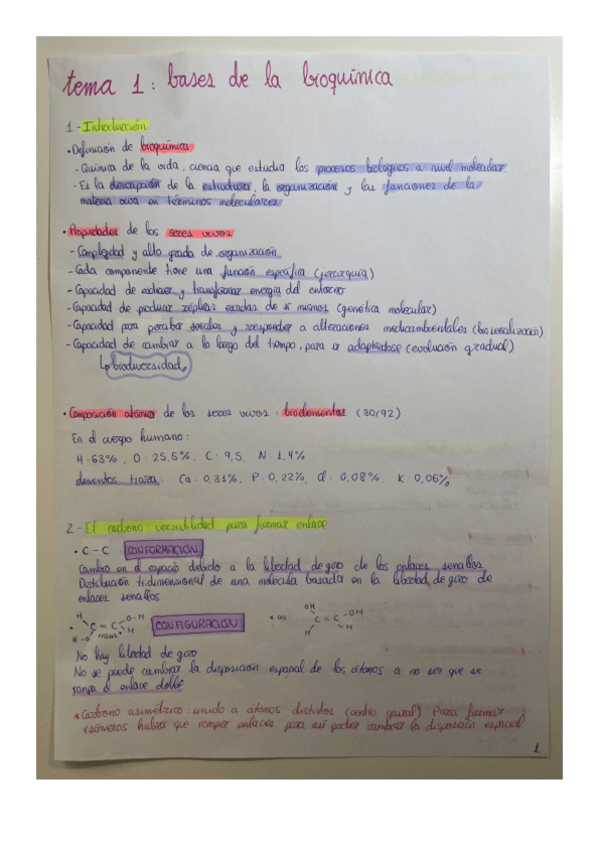 tema 1: bases de la bioquímica
1 - Introducción
• Definición de bioquímica
- Química de la vida, ciencia que estudia los procesos biológicos a nivel molecular
- Es la descripción de la estructura, la organización y las funciones de la
materia viva en términos moleculares
• Propiedades de los seres vivos
- Complejidad y alto grado de organización
- Cada componente tiene una función específica (jerarquía)
- Capacidad de extraer y transformar energía del entorno
- Capacidad de producir réplicas exactas de sí mismos (genética molecular)
- Capacidad para percibir señales y responder a alteraciones medioambientales (bioseñalización)
- Capacidad de cambiar a lo largo del tiempo, para ir adaptándose (evolución gradual)
↳ biodiversidad
• Composición atómica de los seres vivos: bioelementos (30/92)
En el cuerpo humano:
H: 63%, O: 25,5%, C: 9,5, N: 1,4%
elementos traza: Ca: 0,31%, P: 0,22%, Cl: 0,08%, K: 0,06%
2 - El carbono: versatilidad para formar enlace
• C - C CONFORMACIÓN
Cambio en el espacio debido a la libertad de giro de los enlaces sencillos
Distribución tridimensional de una molécula basada en la libertad de giro de
enlaces sencillos
• H O-H C = C H-O trans H CONFIGURACIÓN • cis OH OH C = C H H
No hay libertad de giro
No se puede cambiar la disposición espacial de los átomos a no ser que se
rompa el enlace doble
* Carbono asimétrico: unido a átomos distintos (centro quiral) Para formar
isómeros habrá que romper enlaces para así poder cambiar la disposición espacial
1